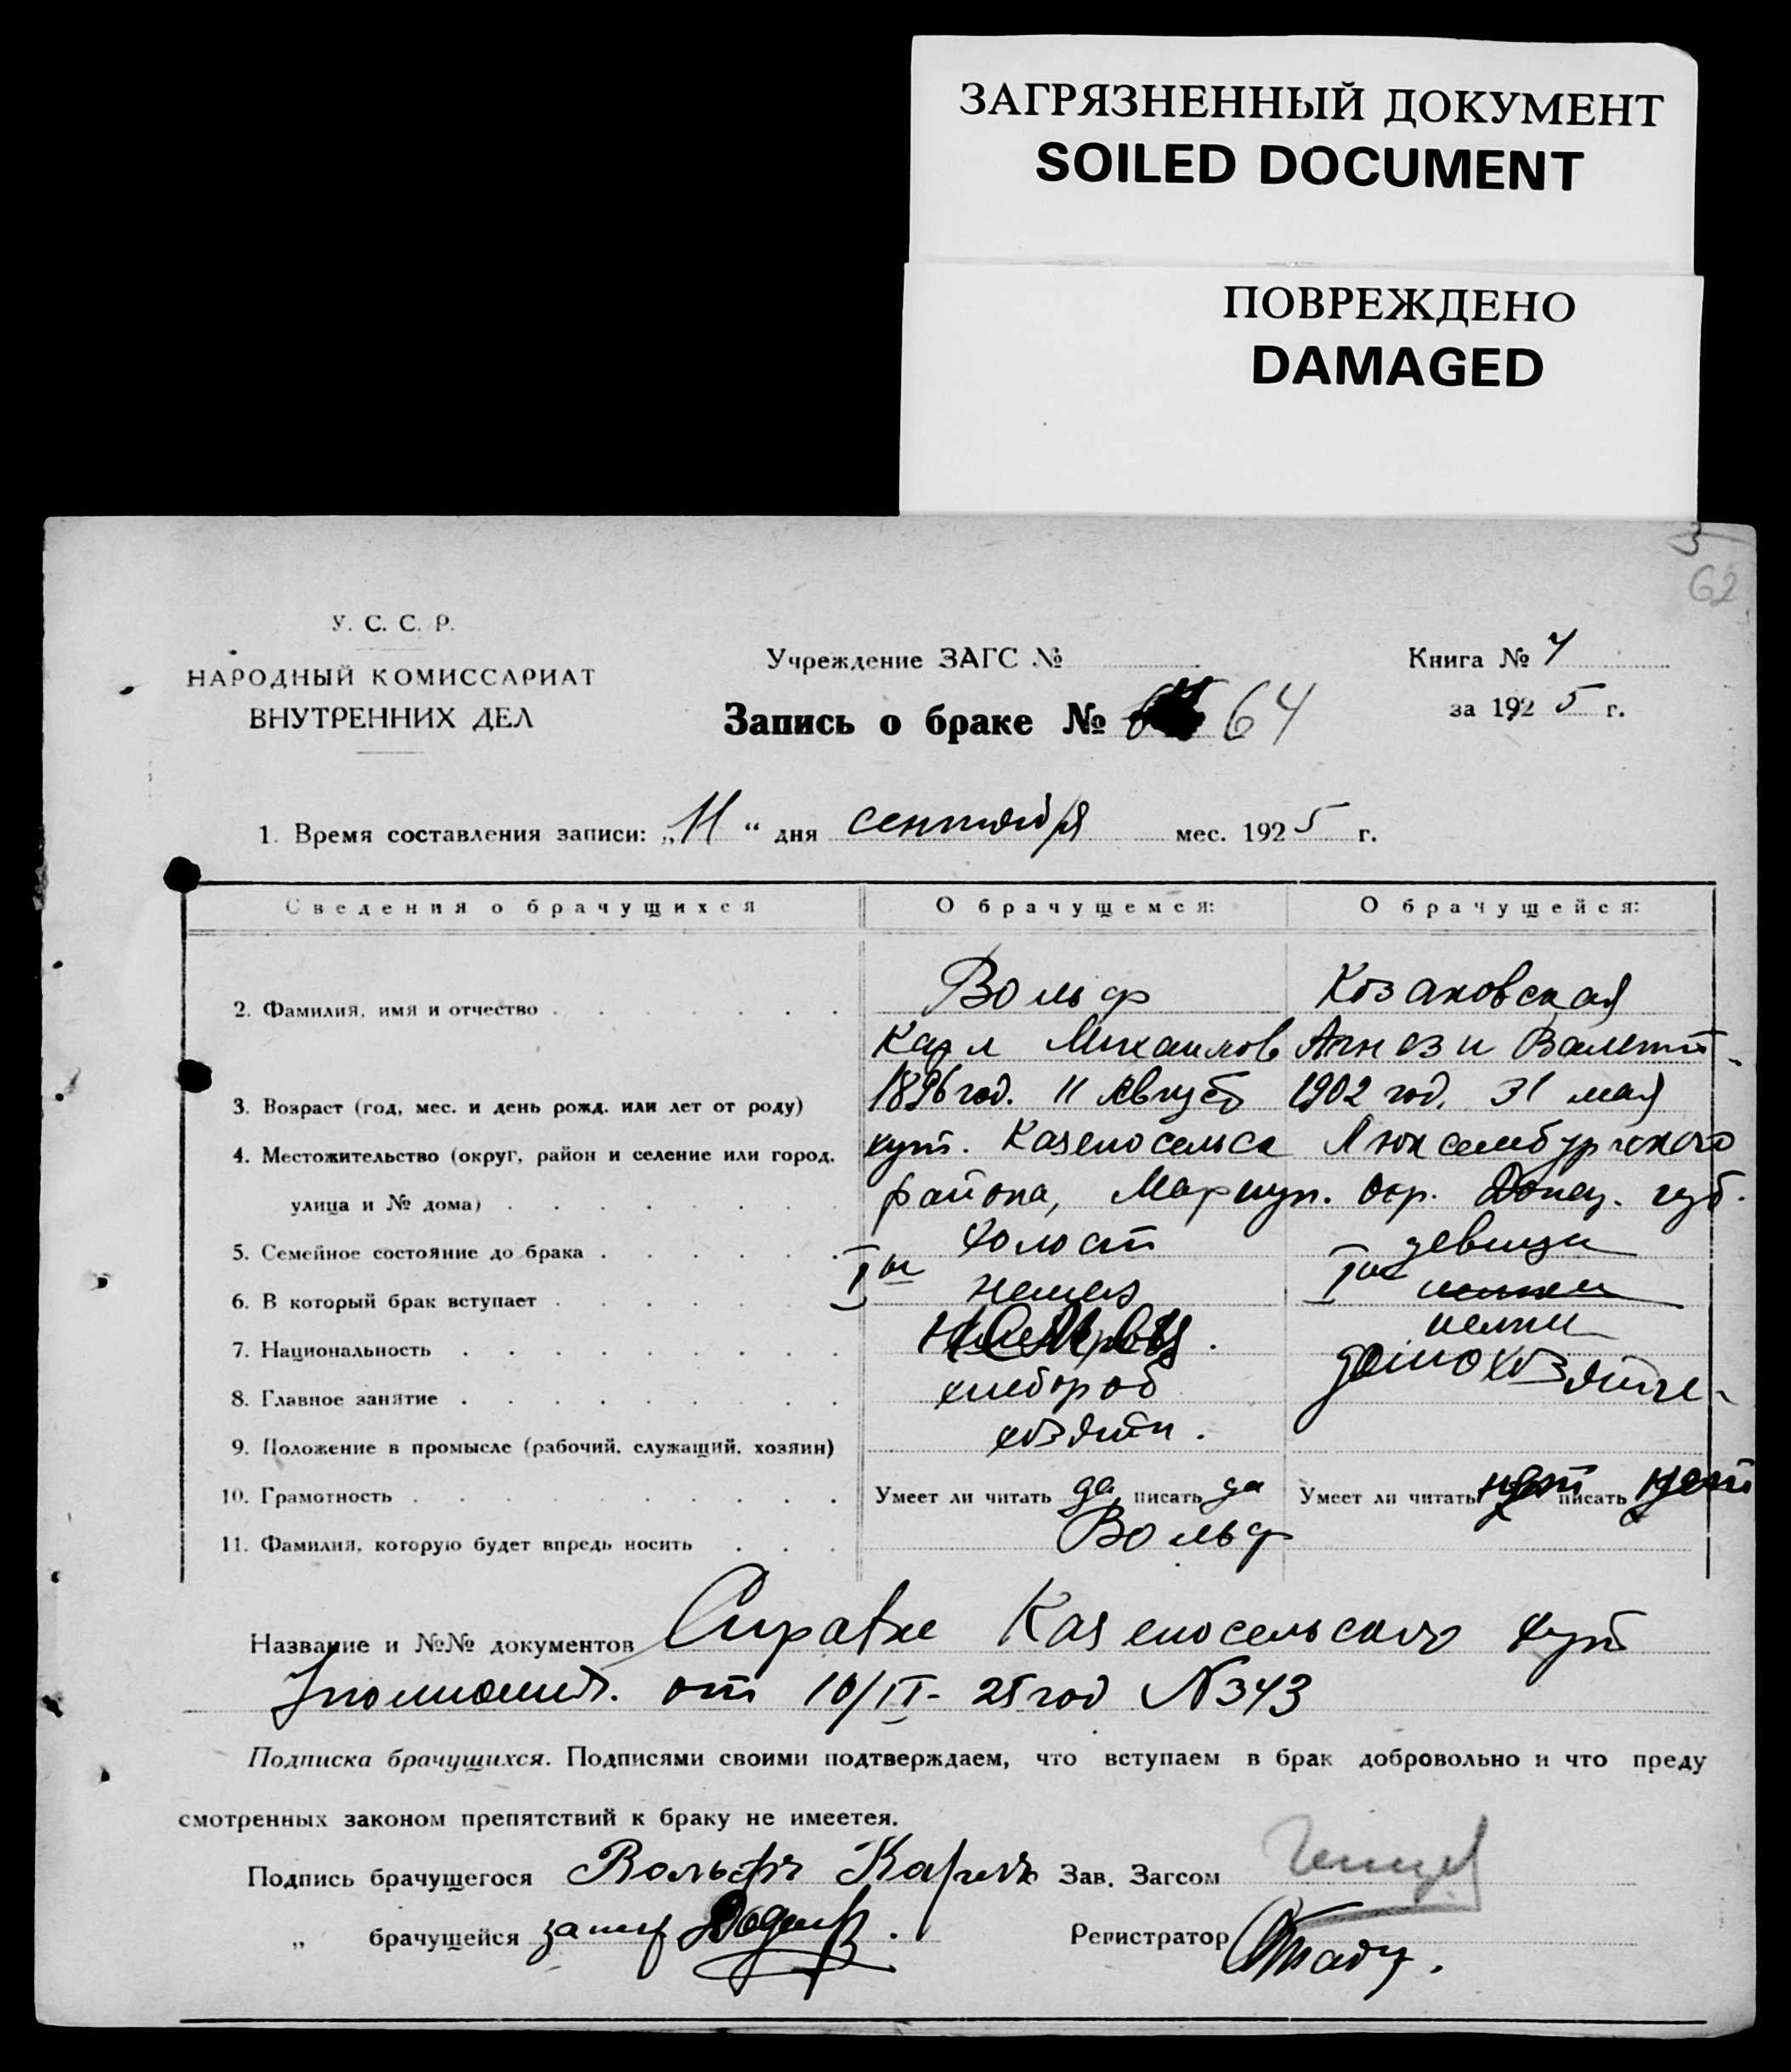 ЗАГРЯЗНЕННЫЙ ДОКУМЕНТ
SOILED DOCUMENT
ПОВРЕЖДЕНО
DAMAGED
5
62
У. С. С. Р.
НАРОДНЫЙ КОМИССАРИАТ
ВНУТРЕННИХ ДЕЛ
Учреждение ЗАГС №
Книга №
за 1925 г.
Запись о браке № 64
1. Время составления записи: „11“ дня сентября мес. 1925 г.
Сведения о брачущихся О брачущемся: О брачущейся:
2. Фамилия, имя и отчество Вольф Козаковская
Карл Михаилов
3. Возраст (год, мес. и день рожд. или лет от роду) 1896 год. 11 август 1902 год. 31 мая
4. Местожительство (округ, район и селение или город, хут. Казеносельск Люксембургского
улица и № дома) района, Мариуп. окр. Донец. губ.
5. Семейное состояние до брака холост девица
6. В который брак вступает I I
7. Национальность немец немка
8. Главное занятие хлебороб домохозяйка
9. Положение в промысле (рабочий, служащий, хозяин) хозяин.
10. Грамотность Умеет ли читать да писать да Умеет ли читать нет писать нет
11. Фамилия, которую будет впредь носить Вольф
Название и №№ документов Справка Казеносельского хут
от 10/IX - 25 год №343
Подписка брачущихся. Подписями своими подтверждаем, что вступаем в брак добровольно и что преду
смотренных законом препятствий к браку не имеетея.
Подпись брачущегося Вольфъ Карлъ Зав. Загсом
„ брачущейся за неё Регистратор